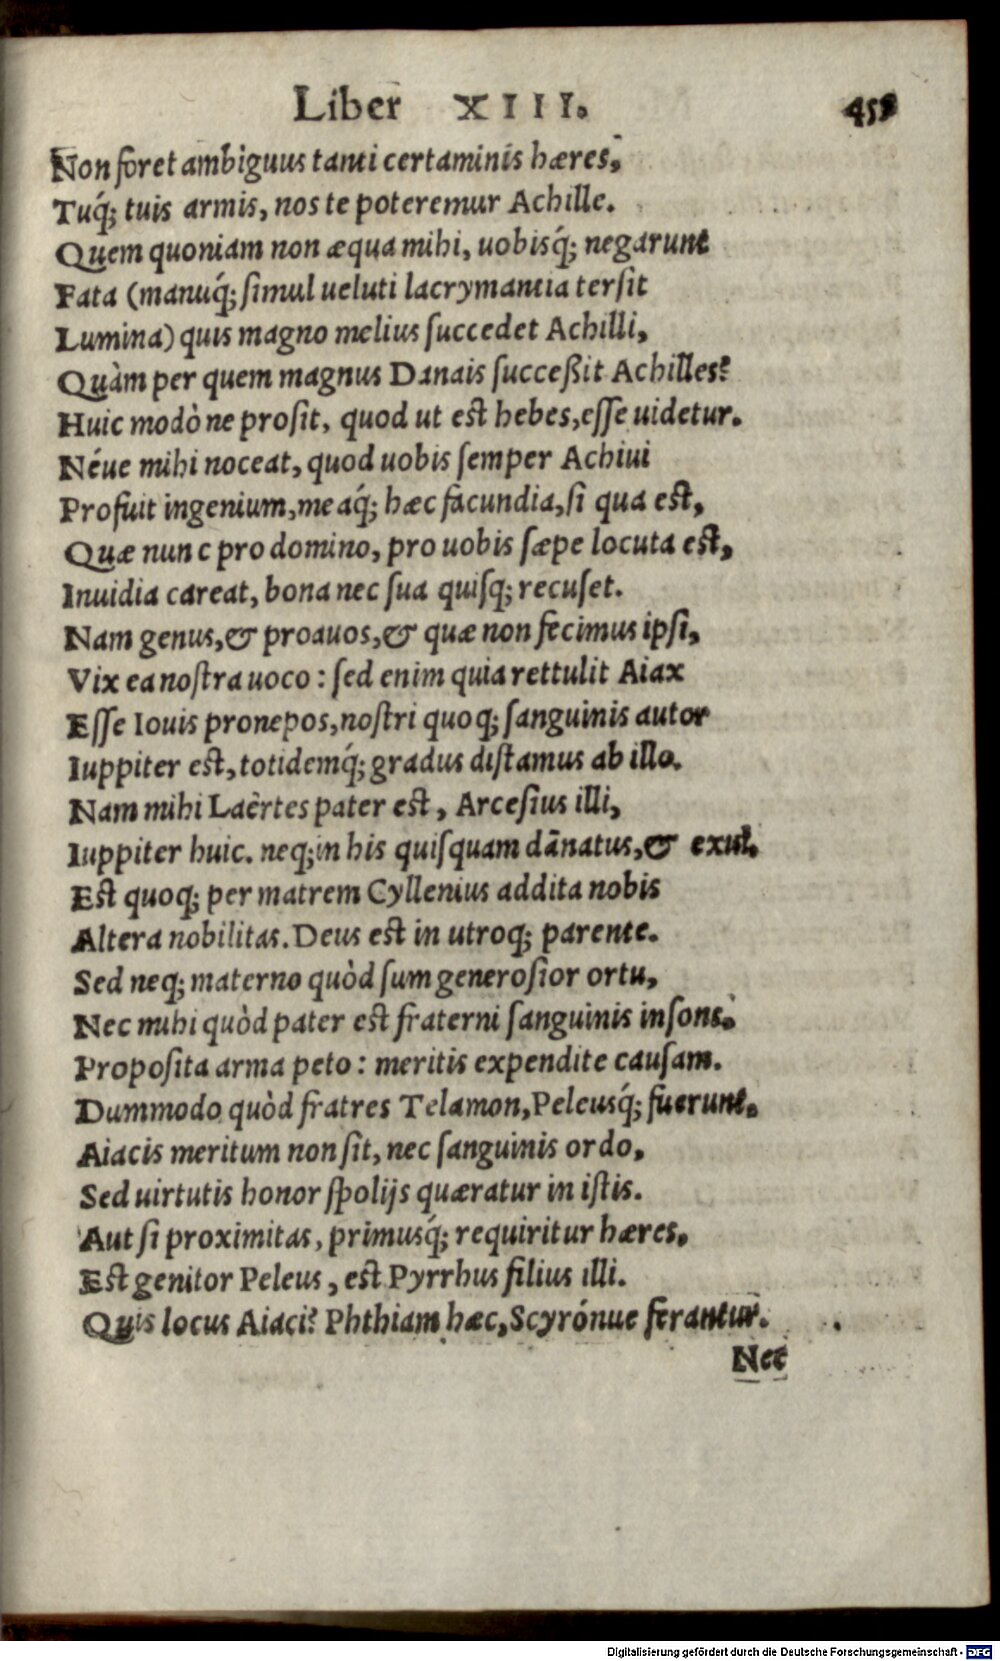 Liber XIII.
Non foret ambiguus tanti certaminis hæres,
Tuq́; tuis armis, nos te poteremur Achille.
Quem quoniam non æqua mihi, uobisq́; negarunt
Fata (manuq́; simul ueluti lacrymantia tersit
Lumina) quis magno melius succedet Achilli,
Quàm per quem magnus Danais succeßit Achilles?
Huic modò ne prosit, quod ut est hebes, esse uidetur.
Néue mihi noceat, quod uobis semper Achiui
Profuit ingenium, meaq́; hæc facundia, si qua est,
Quæ nunc pro domino, pro uobis sæpe locuta est,
Inuidia careat, bona nec sua quisq; recuset.
Nam genus, & proauos, & quæ non fecimus ipsi,
Vix ea nostra uoco: sed enim quia rettulit Aiax
Esse Iouis pronepos, nostri quoq; sanguinis autor
Iuppiter est, totidemq́; gradus distamus ab illo.
Nam mihi Laêrtes pater est, Arcesius illi,
Iuppiter huic. neq; in his quisquam dānatus, & exul.
Est quoq; per matrem Cyllenius addita nobis
Altera nobilitas. Deus est in utroq; parente.
Sed neq; materno quòd sum generosior ortu,
Nec mihi quòd pater est fraterni sanguinis insons.
Proposita arma peto: meritis expendite causam.
Dummodo quòd fratres Telamon, Peleusq́; fuerunt,
Aiacis meritum non sit, nec sanguinis ordo,
Sed uirtutis honor spolijs quæratur in istis.
Aut si proximitas, primusq́; requiritur hæres,
Est genitor Peleus, est Pyrrhus filius illi.
Quis locus Aiaci? Phthiam hæc, Scyrónue ferantur.
Nec
Digitalisierung gefördert durch die Deutsche Forschungsgemeinschaft - DFG